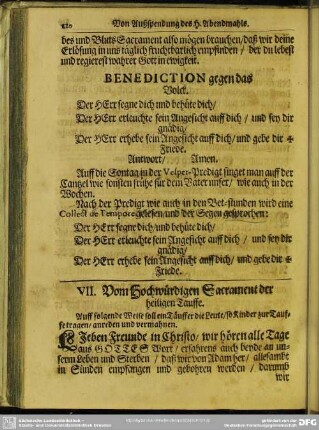 220 Von Außspendung des H. Abendmahls.
des und Bluts Sacrament also mögen brauchen/ daß wir deine
Erlösung in uns täglich fruchtbarlich empfinden/ der du lebest
und regierest wahrer Gott in ewigkeit.
BENEDICTION gegen das
Volck.
Der HErr segne dich und behüte dich/
Der HErr erleuchte sein Angesicht auff dich / und sey dir
gnädig/
Der HErr erhebe sein Angesicht auff dich/ und gebe dir ✠
Friede.
Antwort/ Amen.
Auff die Sontag in der Vesper-Predigt singet man auff der
Cantzel wie sonsten frühe für dem Vater unser/ wie auch in der
Wochen.
Nach der Predigt wie auch in den Bet-stunden wird eine
Collect de Tempore gelesen/ und der Segen gesprochen:
Der HErr segne dich und behüte dich/
Der HErr erleuchte sein Angesicht auff dich / und sey dir
gnädig/
Der HErr erhebe sein Angesicht auff dich/ und gebe dir ✠
Friede.
VII. Vom Hochwürdigen Sacrament der
heiligen Tauffe.
Auff folgende Weise soll ein Täuffer die Leute/ so Kinder zur Tauf-
fe tragen/ anreden und vermahnen.
LIeben Freunde in Christo/ wir hören alle Tage
aus GOTTES Wort/ erfahrens auch beyde an un-
serm Leben und Sterben/ daß wir von Adam her/ allesambt
in Sünden empfangen und gebohren werden/ darumb
wir
SLUB
DFG